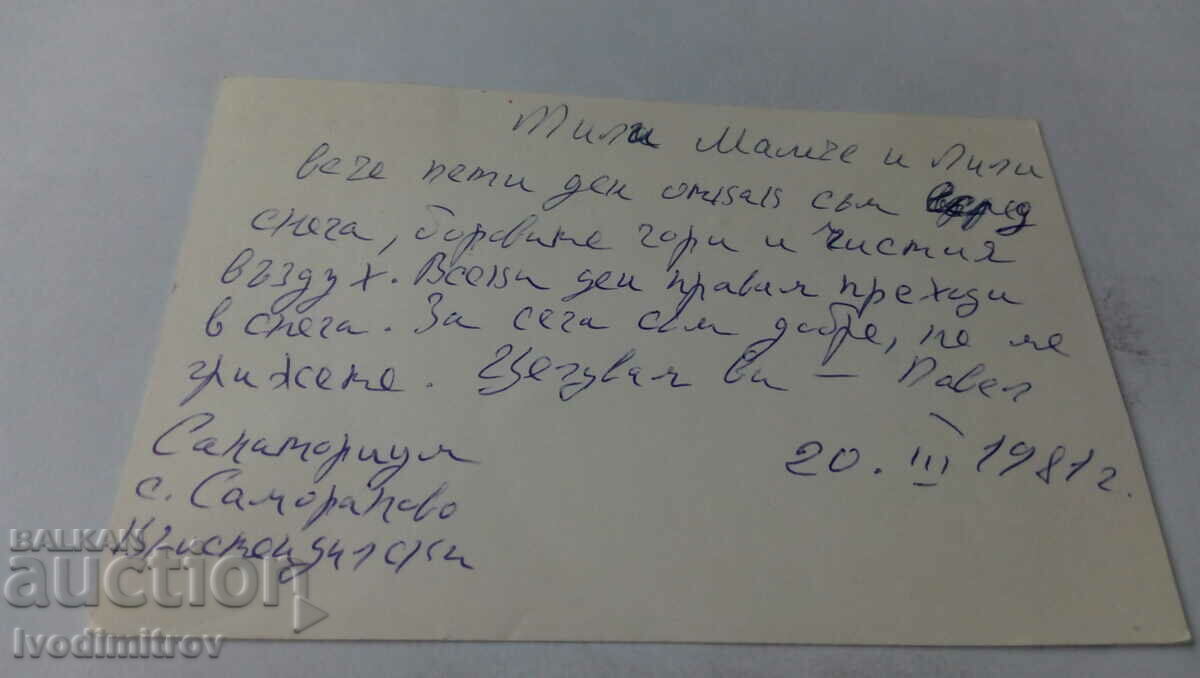 Мили Мамче и Лили
вече пети ден откак съм сред
снега, боровите гори и чистия
въздух. Всеки ден правя преходи
в снега. За сега съм добре, не ме
грижете. Целувам ви – Павел
20. III 1981 г.
Санаториум
с. Сапарево
Кюстендилски
BALKAN
auction
Ivodimitrov